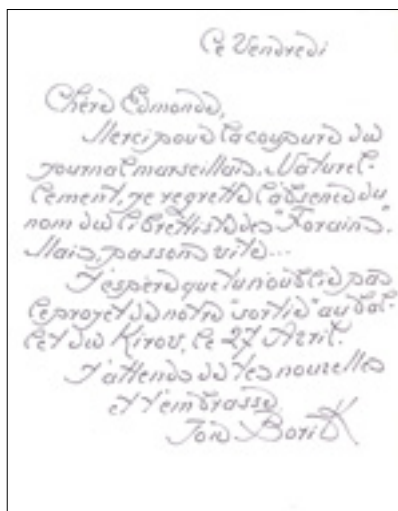 Ce Vendredi
Chère Edmonde,
Merci pour la coupure du
journal marseillais. Naturel-
lement, je regrette l'absence du
nom du librettiste des "Forains".
Mais, passons vite...
J'espère que tu n'oublie pas
le projet de notre "sortie" au bal-
let du Kirov, le 27 Avril.
J'attends de tes nouvelles
et t'embrasse
Boris K